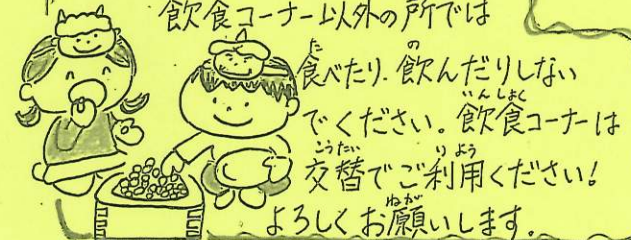 飲食コーナー以外の所では
食べたり、飲んだりしない
でください。飲食コーナーは
交替でご利用ください!
よろしくお願いします。